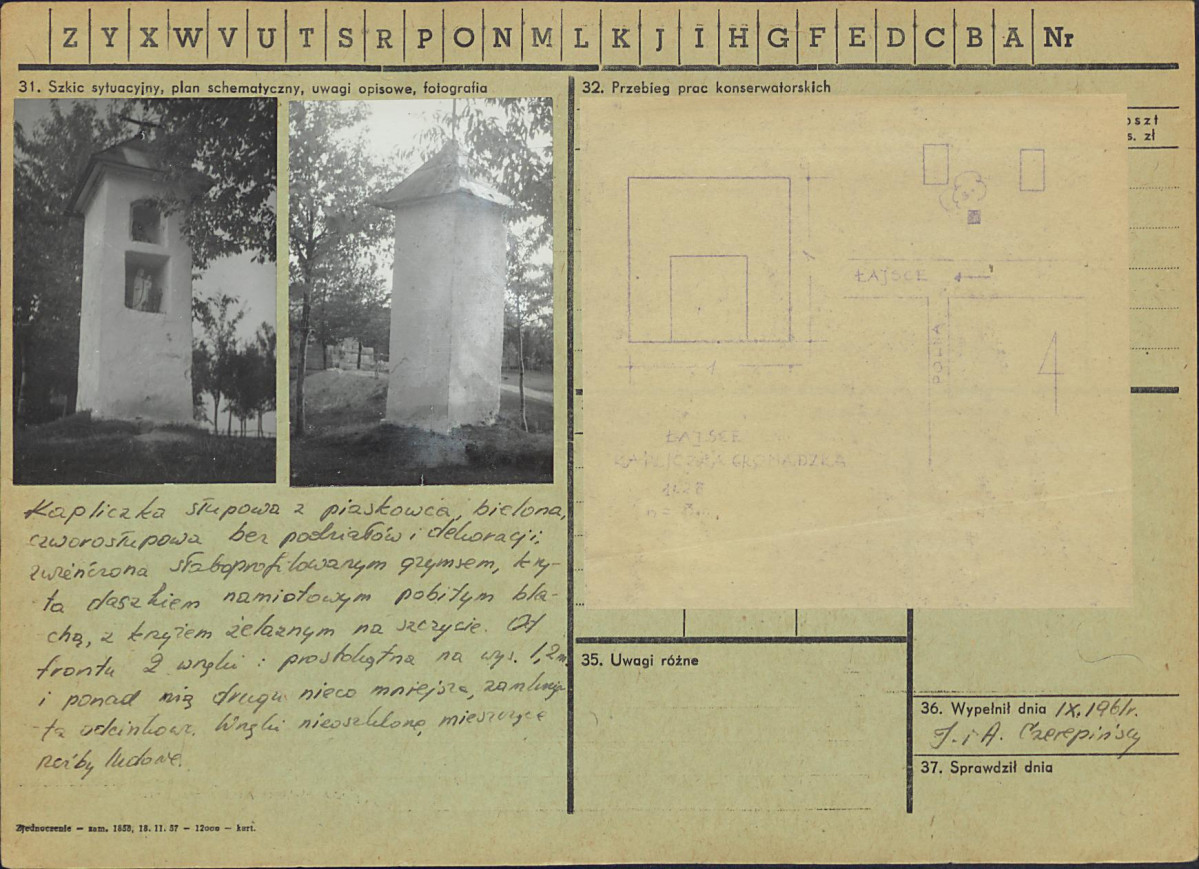 Z Y X W V U T S R P O N M L K J I H G F E D C B A Nr
31. Szkic sytuacyjny, plan schematyczny, uwagi opisowe, fotografia
Kapliczka słupowa z piaskowca, bielona,
czworosłupowa bez podziałów i dekoracji;
zwieńczona słaboprofilowanym gzymsem, kry-
ta daszkiem namiotowym pobitym bla-
chą, z krzyżem żelaznym na szczycie. Od
frontu 2 wnęki: prostokątna na wys. 1,2 m,
i ponad nią druga nieco mniejsza, zamknię-
ta odcinkowo. Wnęki nieoszklone, mieszczące
rzeźby ludowe.
Zjednoczenie — zam. 1858, 18. 11. 57 — 12000 — kart.
32. Przebieg prac konserwatorskich
oszt
s. zł
ŁAJSCE
POLNA
1
1
ŁAJSCE
KAPLICZKA GROMADZKA
35. Uwagi różne
36. Wypełnił dnia IX, 1961r.
J. i A. Czerepińscy
37. Sprawdził dnia